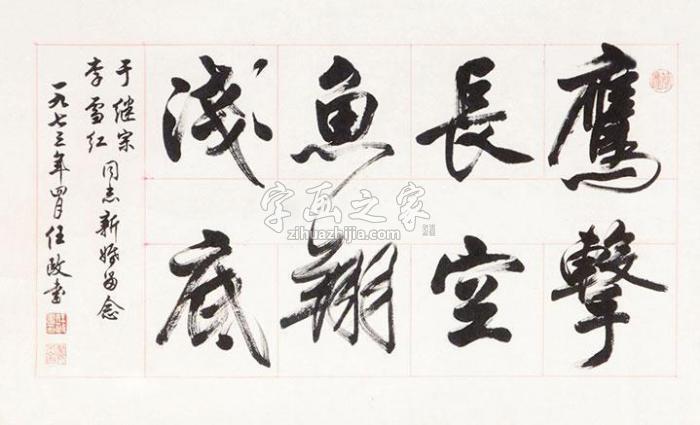 鷹擊
長空
魚翔
淺底
于继宗
李雪红
同志新婚留念
一九七三年四月任政書
字画之家
zihuazhijia.com